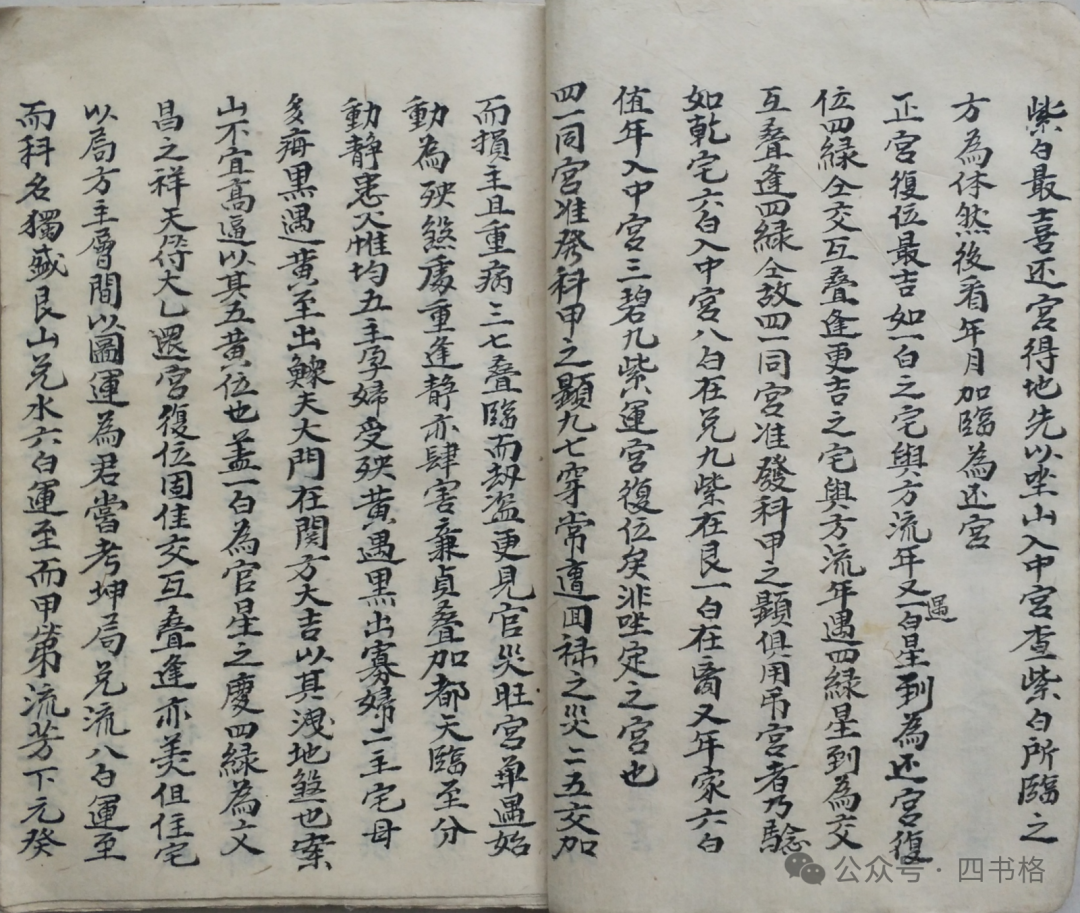 紫白最喜还宮得地先以坐山入中宮查紫白所臨之
方為体然後看年月加臨為还宮
正宮復位最吉如一白之宅與方流年又遇一白星到為还宮復
位四綠仝交互叠逢更吉之宅與方流年遇四綠星到為交
互叠逢四綠仝故四一同宮准發科甲之顯俱用吊宮者乃驗
如乾宅六白入中宮八白在兑九紫在艮一白在离又年家六白
值年入中宮三碧九紫八運宮復位矣非坐定之宮也
四一同宮准發科甲之顯九七穿常遭回禄之災二五交加
而損主且重病三七叠臨而刼盗更見官災旺宮单遇始
動為殃煞處重逢静亦肆害亷貞叠加都天臨至分
動静患火惟均五主孕婦受殃黄遇黒出寡婦二主宅母
多病黒遇黄至出鰥夫大門在関方大吉以其洩地煞也案
山不宜高逼以其五黄位也盖一白為官星之慶四綠為文
昌之祥天符大乙還宮復位固佳交互叠逢亦美但住宅
以局方主層間以圖運為君嘗考坤局兑流八白運至
而科名獨盛艮山兑水六白運至而甲第流芳下元癸
公众号·四书格